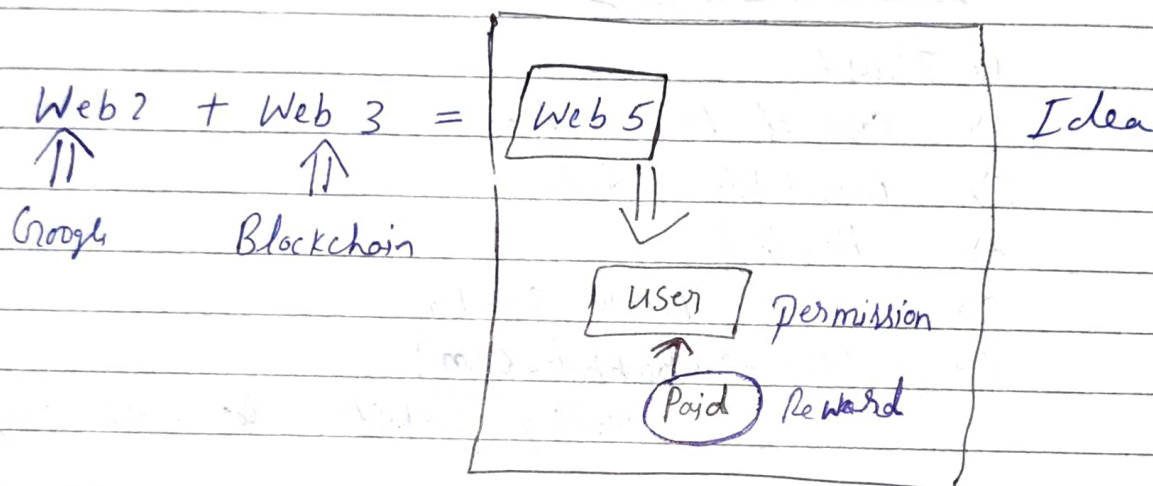 Web 2 + Web 3 = Web 5 Idea
Google Blockchain
user Permission
Paid Reward